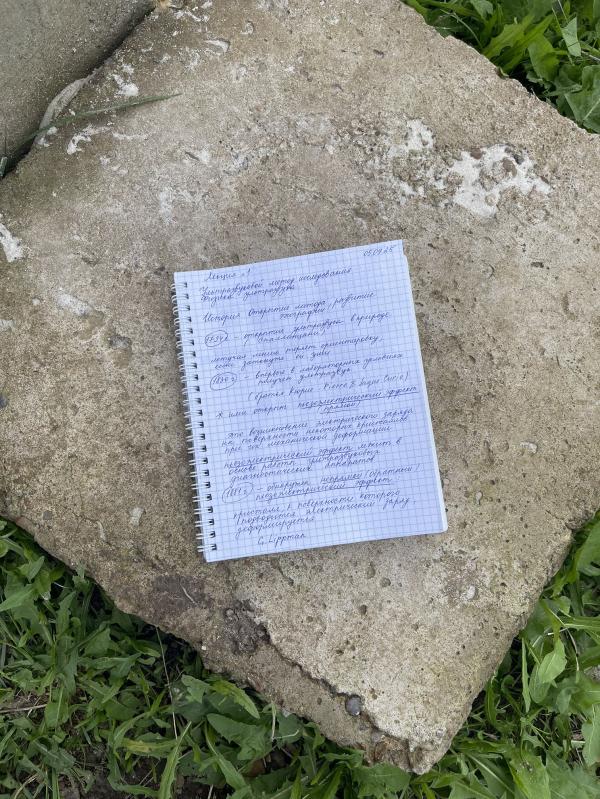 Лекция №1 05.09.25
Ультразвуковой метод исследования
Физика ультразвука
История Открытия метода, развитие
эхографии
1794г - открытие ультразвука в природе
(Спалланцани)
летучая мышь теряет ориентировку,
если заткнуть ей уши
1880г - впервые в лабораторных условиях
получен ультразвук
(братья Кюри Pierre & Jaques Curie)
& ими открыт пьезоэлектрический эффект
(прямой)
это возникновение электрического заряда
на поверхности некоторых кристаллов
при их механической деформации
пьезоэлектрический эффект лежит в
основе работы ультразвуковых
диагностических аппаратов
1881г - обнаружен непрямой (обратный)
пьезоэлектрический эффект
кристалл, к поверхности которого
подводится электрический заряд
деформируется
G. Lippman